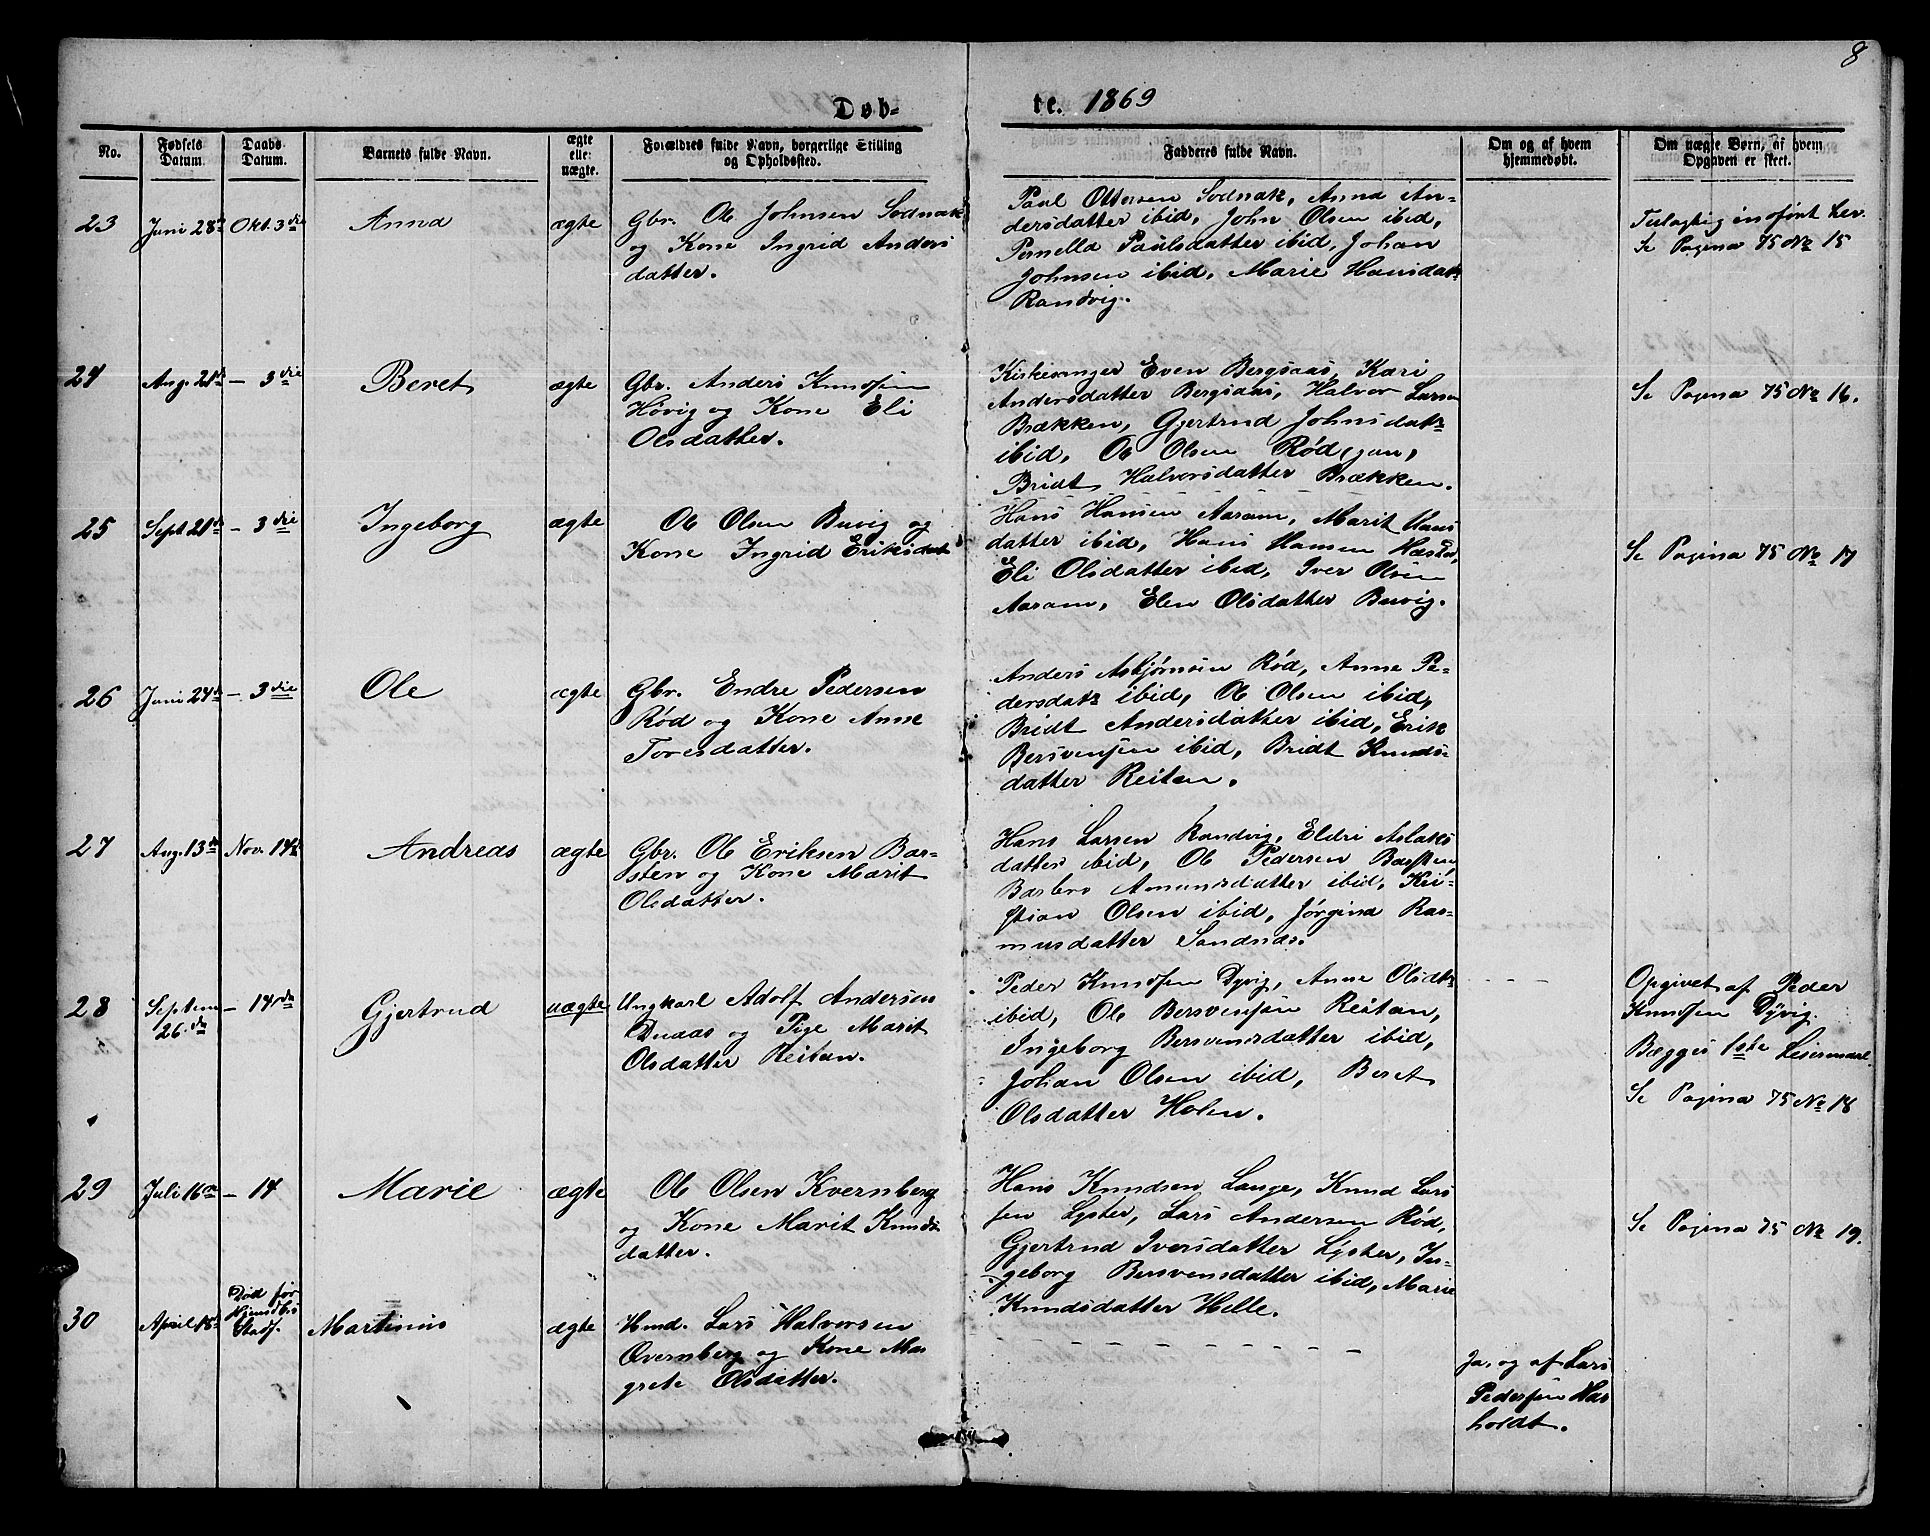 8
Døb-
te. 1869
No.
Fødsels Datum.
Daabs Datum.
Barnets fulde Navn.
ægte elle: uægte.
Forældres fulde Navn, borgerlige Stilling og Opholdssted.
Fadderes fulde Navn.
Om og af hvem hjemmedøbt.
Om uægte Børn, af hvem Opgaven er skeet.
23
Juni 28de
Okt. 3die
Anna
ægte
Gbr. Ole Johnsen Sødnak
og Kone Ingrid Anders
datter.
Paul Ottersen Sødnak, Anna An-
dersdatter ibid, John Olsen ibid,
Pernella Paulsdatter ibid, Johan
Johnsen ibid, Marie Hansdatr
Randvig.
indført her.
Se Pagina 75 No 15
24
Aug. 21de
- 3die
Beret
ægte
Gbr. Anders Knudsen
Høvig og Kone Eli
Olsdatter.
Kirkesanger Even Bergsaas, Kari
Andersdatter Bergsaas, Halvor Larsen
Brækken, Gjertrud Johnsdatr
ibid, Ole Olsen Rød,
Bridt Halvorsdatter Brækken.
Se Pagina 75 No 16.
25
Sept 21de
- 3die
Ingeborg
ægte
Ole Olsen Buvig og
Kone Ingrid Eriksdat
Hans Hansen Aaram, Marit Hans
datter ibid, Hans Hansen
Eli Olsdatter ibid, Iver Olsen
Aaram, Elen Olsdatter Buvig.
Se Pagina 75 No 17
26
Juni 24de
- 3die
Ole
ægte
Gbr. Endre Pedersen
Rød og Kone Anne
Toresdatter.
Anders Asbjørnsen Rød, Anne Pe-
dersdatr ibid, Ole Olsen ibid,
Bridt Andersdatter ibid, Erik
Bersvensen ibid, Bridt Knuds-
datter Reitan.
27
Aug. 13de
Nov. 14de
Andreas
ægte
Gbr. Ole Eriksen Bar-
sten og Kone Marit
Olsdatter.
Hans Larsen Randvig, Eldri Aslaks
datter ibid, Ole Pedersen Barsten,
Barbro Amunsdatter ibid, Kri-
stian Olsen ibid, Jørgina Ras-
musdatter Sandnæs.
28
Septem
26.de
- 14de
Gjertrud
uægte
Ungkarl Adolf Andersen
Duaas og Pige Marit
Olsdatter Reitan.
Peder Knudsen Dyvig, Anne Olsdtr
ibid, Ole Bersvensen Reitan,
Ingeborg Bersvensdatter ibid,
Johan Olsen ibid, Beret
Olsdatter Holen.
- - -
Opgivet af Peder
Knudsen Dyvig.
Begges 1ste Leiermaal
Se Pagina 75 No 18
29
Juli 16de
- 14
Marie
ægte
Ole Olsen Kvernberg
og Kone Marit Knuds
datter.
Hans Knudsen Lange, Knud Lars
sen Lyster, Lars Andersen Rød,
Gjertrud Iversdatter Lyster, In-
geborg Bersvensdatter ibid, Marie
Knudsdatter Helle.
Se Pagina 75 No 19.
30
April 18de
Død før
Hjemdbs
Stadf.
Martinus
ægte
Hmd. Lars Halvorsen
Qvernberg og Kone Mar
grete Olsdatter.
- - - - - - - -
Ja, og af Lars
Pedersen Has
holdt.